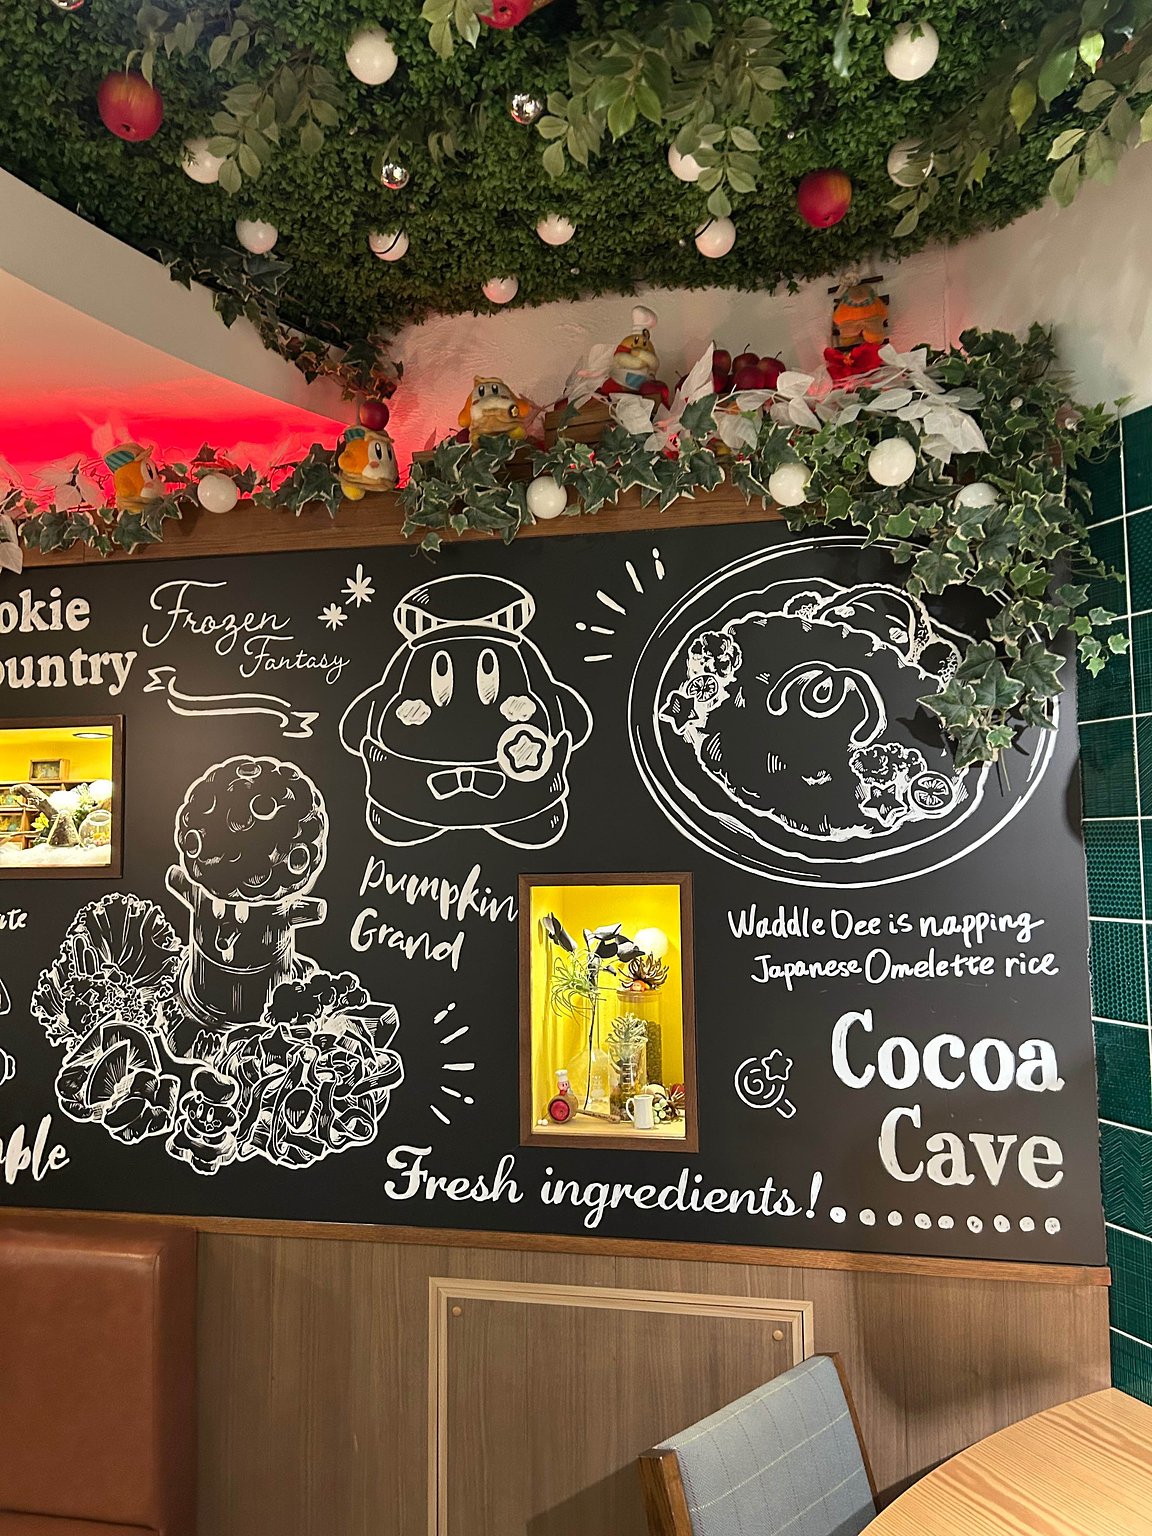 okie
ountry
Frozen
Fantasy
Pumpkin
Grand
Waddle Dee is napping
Japanese Omelette rice
Cocoa
Cave
Fresh ingredients!